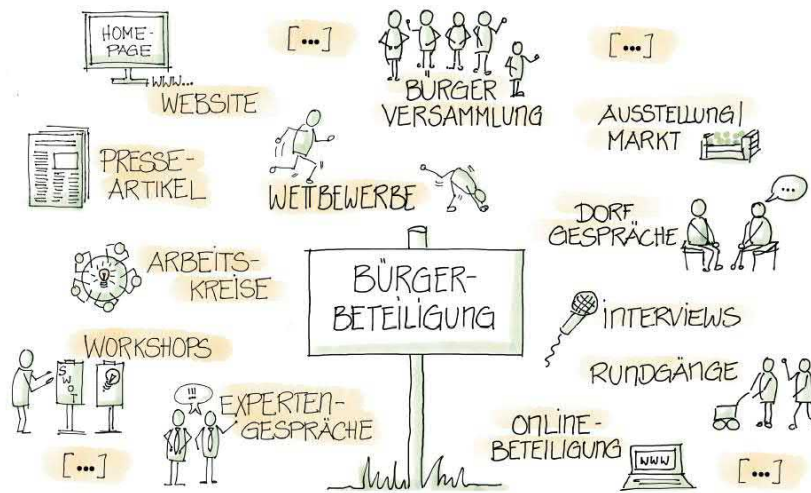 HOME-
PAGE
WWW...
WEBSITE
[...]
BÜRGER
VERSAMMLUNG
[...]
AUSSTELLUNG/
MARKT
PRESSE-
ARTIKEL
WETTBEWERBE
...
DORF
GESPRÄCHE
ARBEITS-
KREISE
BÜRGER-
BETEILIGUNG
INTERVIEWS
WORKSHOPS
SWOT
RUNDGÄNGE
!!!
EXPERTEN-
GESPRÄCHE
ONLINE-
BETEILIGUNG
WWW
[...]
[...]